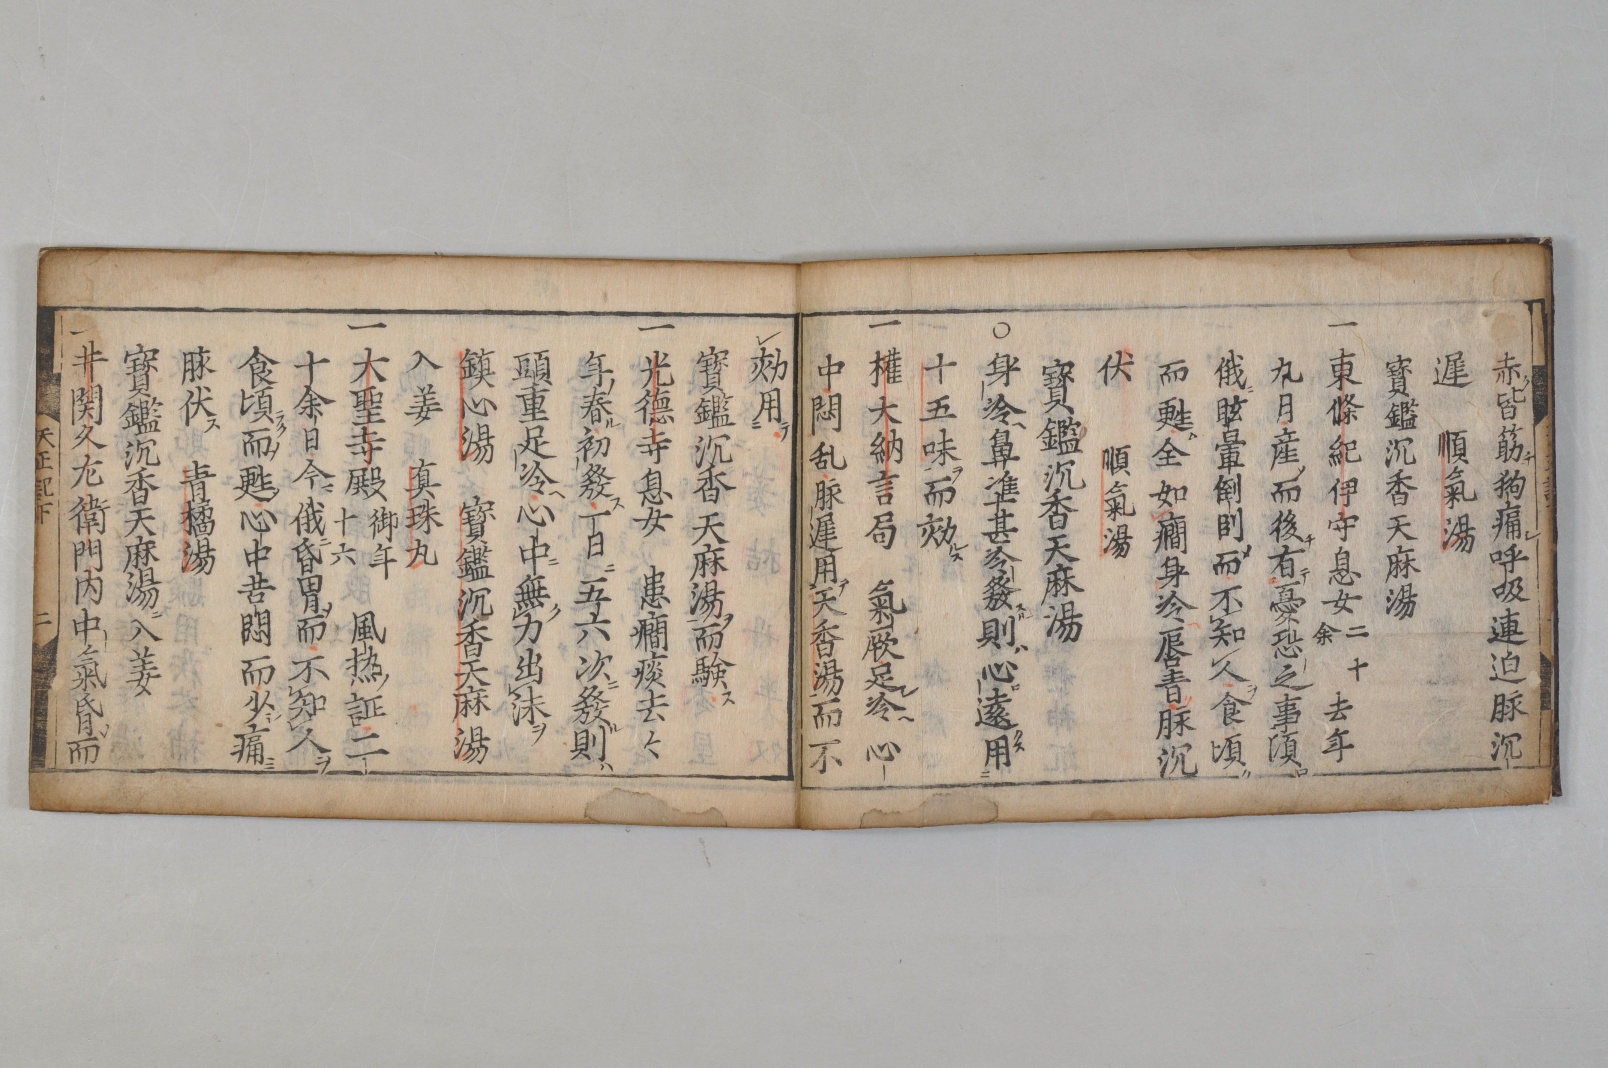 赤ク皆筋拘痛呼吸連迫脉沉
遲　順氣湯
寳鑑沉香天麻湯
一東條紀伊守息女二十余去年
九月産ノ而後チ有テ憂恐之事頃ロ
俄ニ眩暈倒則而不知人ヲ食頃
而甦全如癇身冷唇青脉沉
伏　順氣湯
寳鑑沉香天麻湯
○身冷鼻準甚冷發則心遠用
十五味ヲ而効
一權大納言局　氣厥足冷心
中悶乱脉遲用天香湯而不
効用テ
寳鑑沉香天麻湯ヲ而験ス
一光德寺息女　患癇痰去々
年春初發ス一日ニ五六次ニ發則
頭重足冷心中ニ無力出沫ヲ
鎮心湯　寳鑑沉香天麻湯
入姜　真珠丸
一大聖寺殿御年十六　風热ノ証二
十余日今ニ俄ニ昏冐而不知人ヲ
食頃而甦心中苦悶而少痛
脉伏ス　青橘湯
寳鑑沉香天麻湯ニ入姜
一井関久左衛門内中氣昏而
天正記下　二